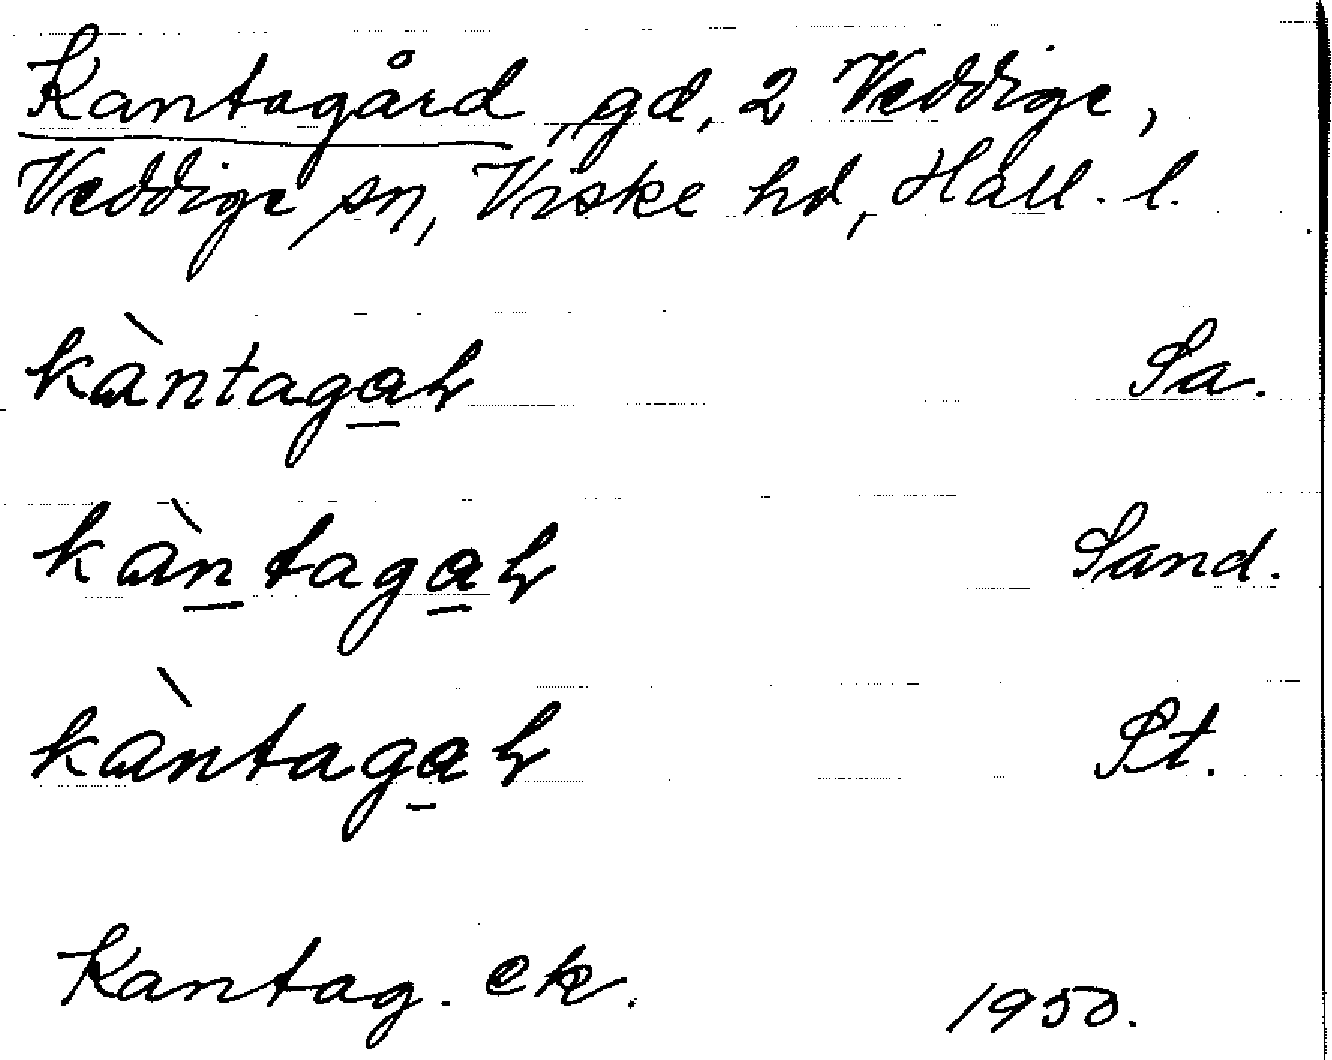 Kantagård, gd, 2 Veddige,
Veddige sn, Viske hd, Hall. l.
kàntagar Sa.
kàntagar Sand.
kàntagar St.
Kantag. ek. 1950.